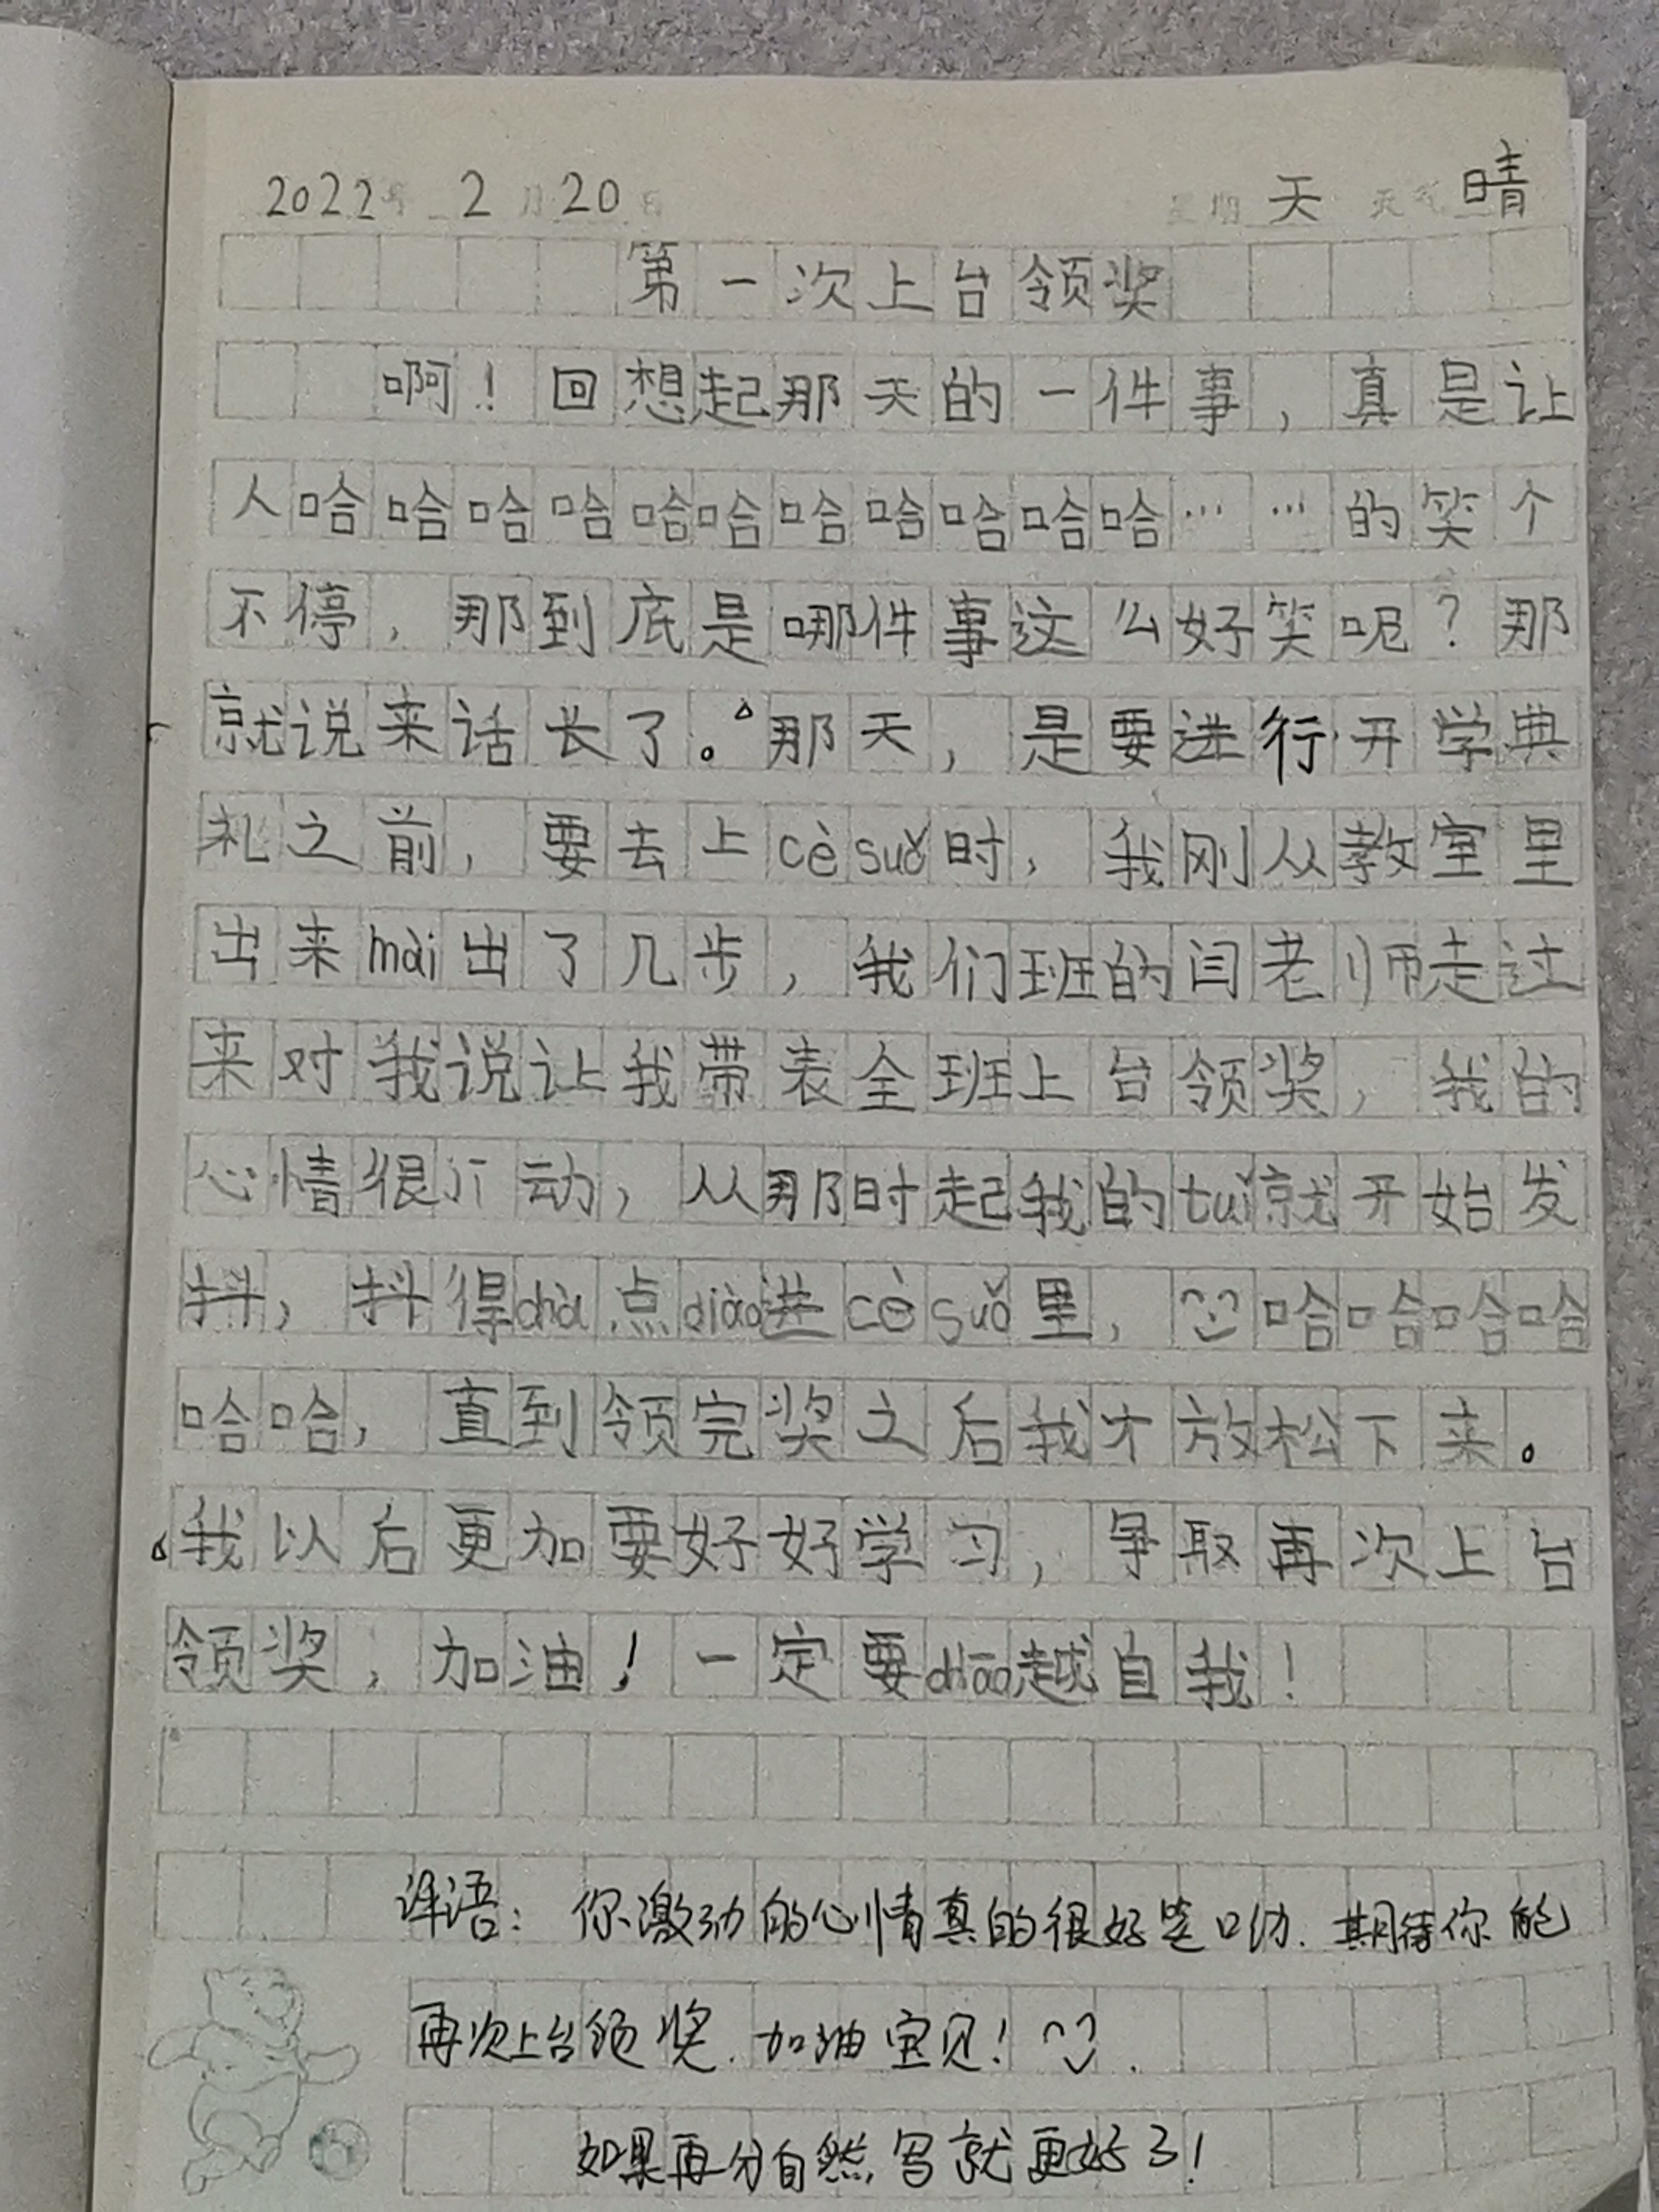 2022年 2月 20日 星期 天 天气 晴
第一次上台领奖
啊！回想起那天的一件事，真是让
人哈哈哈哈哈哈哈哈哈哈哈……的笑个
不停，那到底是哪件事这么好笑呢？那
就说来话长了。那天，是要进行开学典
礼之前，要去上cè suǒ时，我刚从教室里
出来mài出了几步，我们班的闫老师走过
来对我说让我带表全班上台领奖，我的
心情很 动，从那时起我的tuǐ就开始发
抖，抖得chà点diào进cè suǒ里，哈哈哈哈
哈哈，直到领完奖之后我才放松下来。
我以后更加要好好学习，争取再次上台
领奖，加油！一定要chāo越自我！
评语：你激动的心情真的很好 呦.期待你能
再次上台领奖.加油宝贝！
如果再分自然写就更好了！